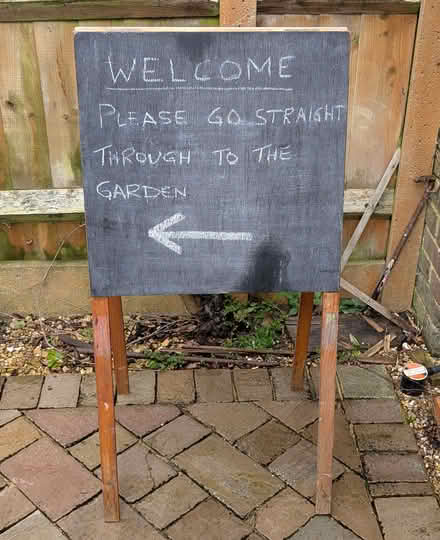 WELCOME
PLEASE GO STRAIGHT
THROUGH TO THE
GARDEN